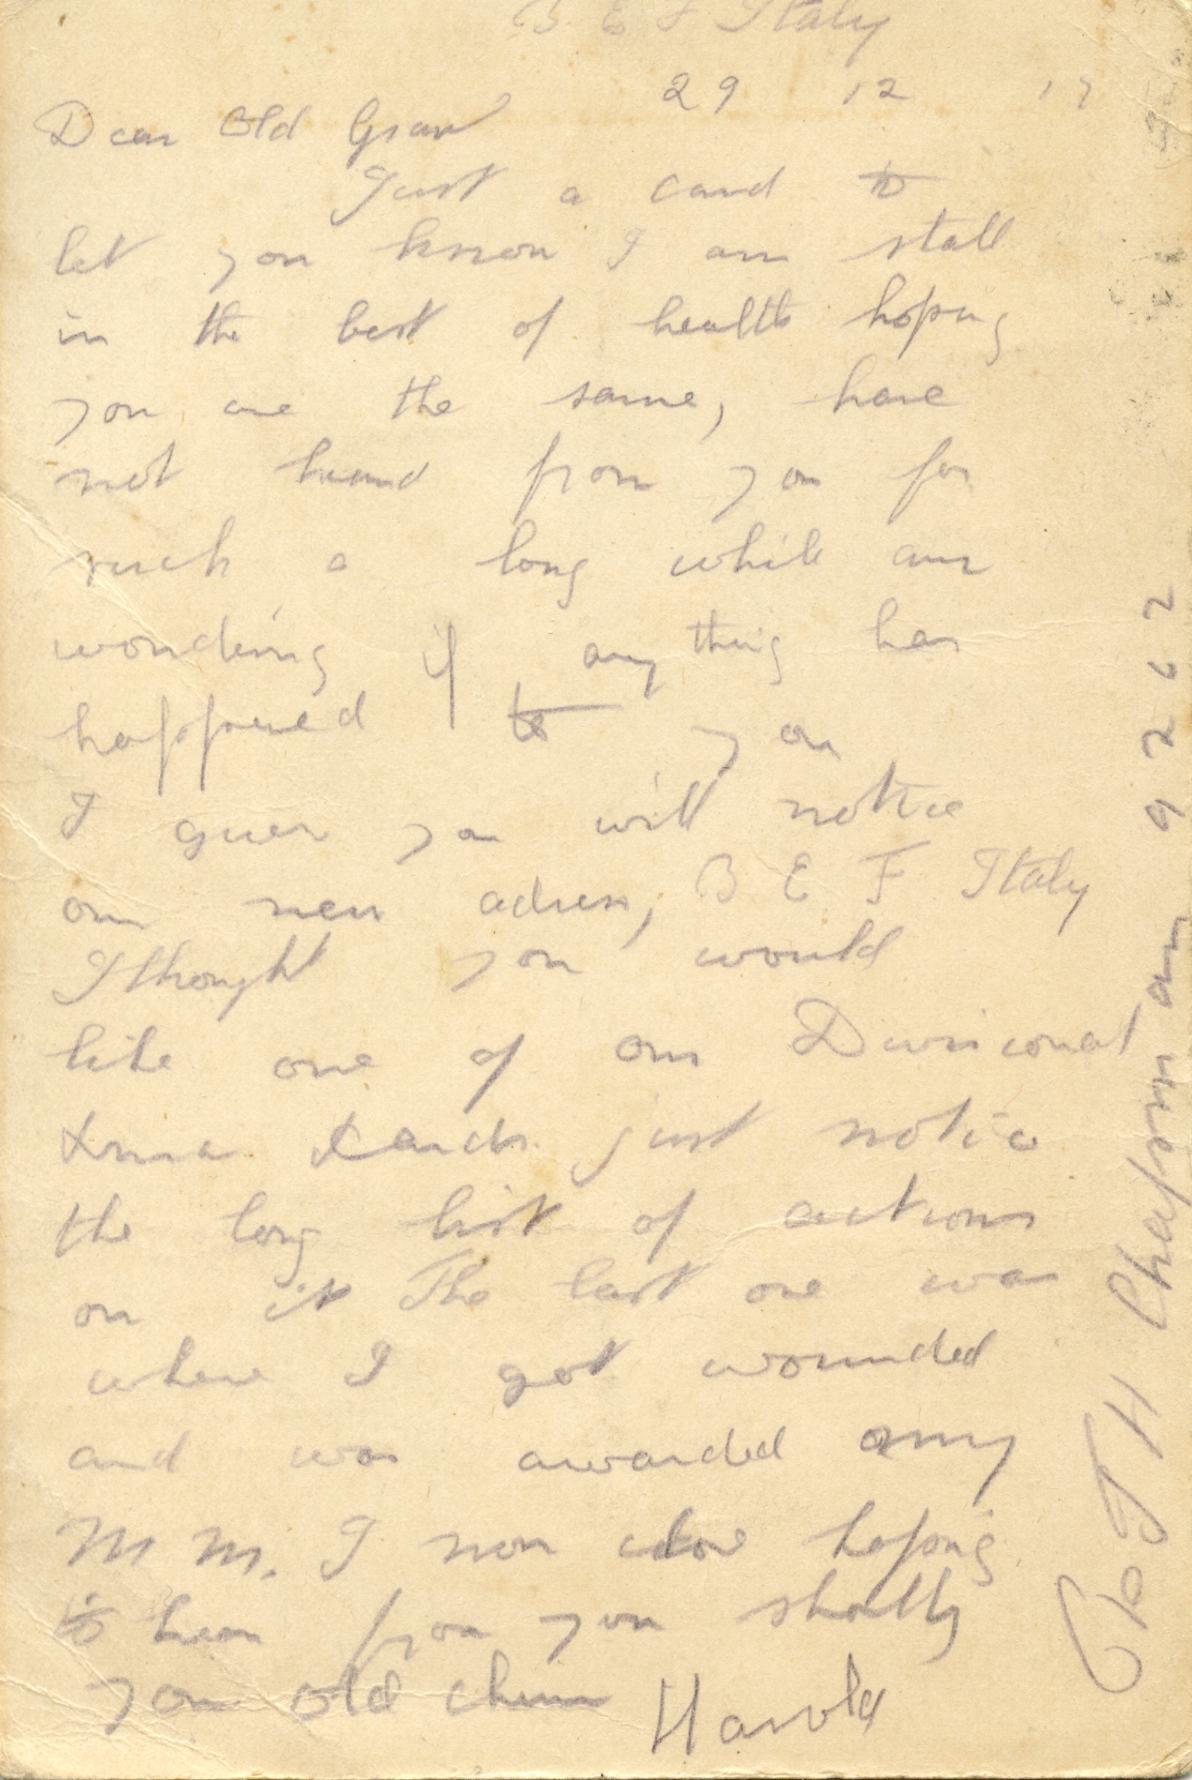 B E F Italy
29 12 17
Dear Old Gran
Just a card to
let you know I am still
in the best of health hoping
you are the same, have
not heard from you for
such a long while am
wondering if any thing has
happened to you
I guess you will notice
our new adress, B E F Italy
I thought you would
like one of our Divisional
Xmas Cards just notice
the long list of actions
on it The last one was
where I got wounded
and was awarded my
M M. I now close hoping
to hear from you shortly
your old chum Harold
Cpl H Chapman 9262